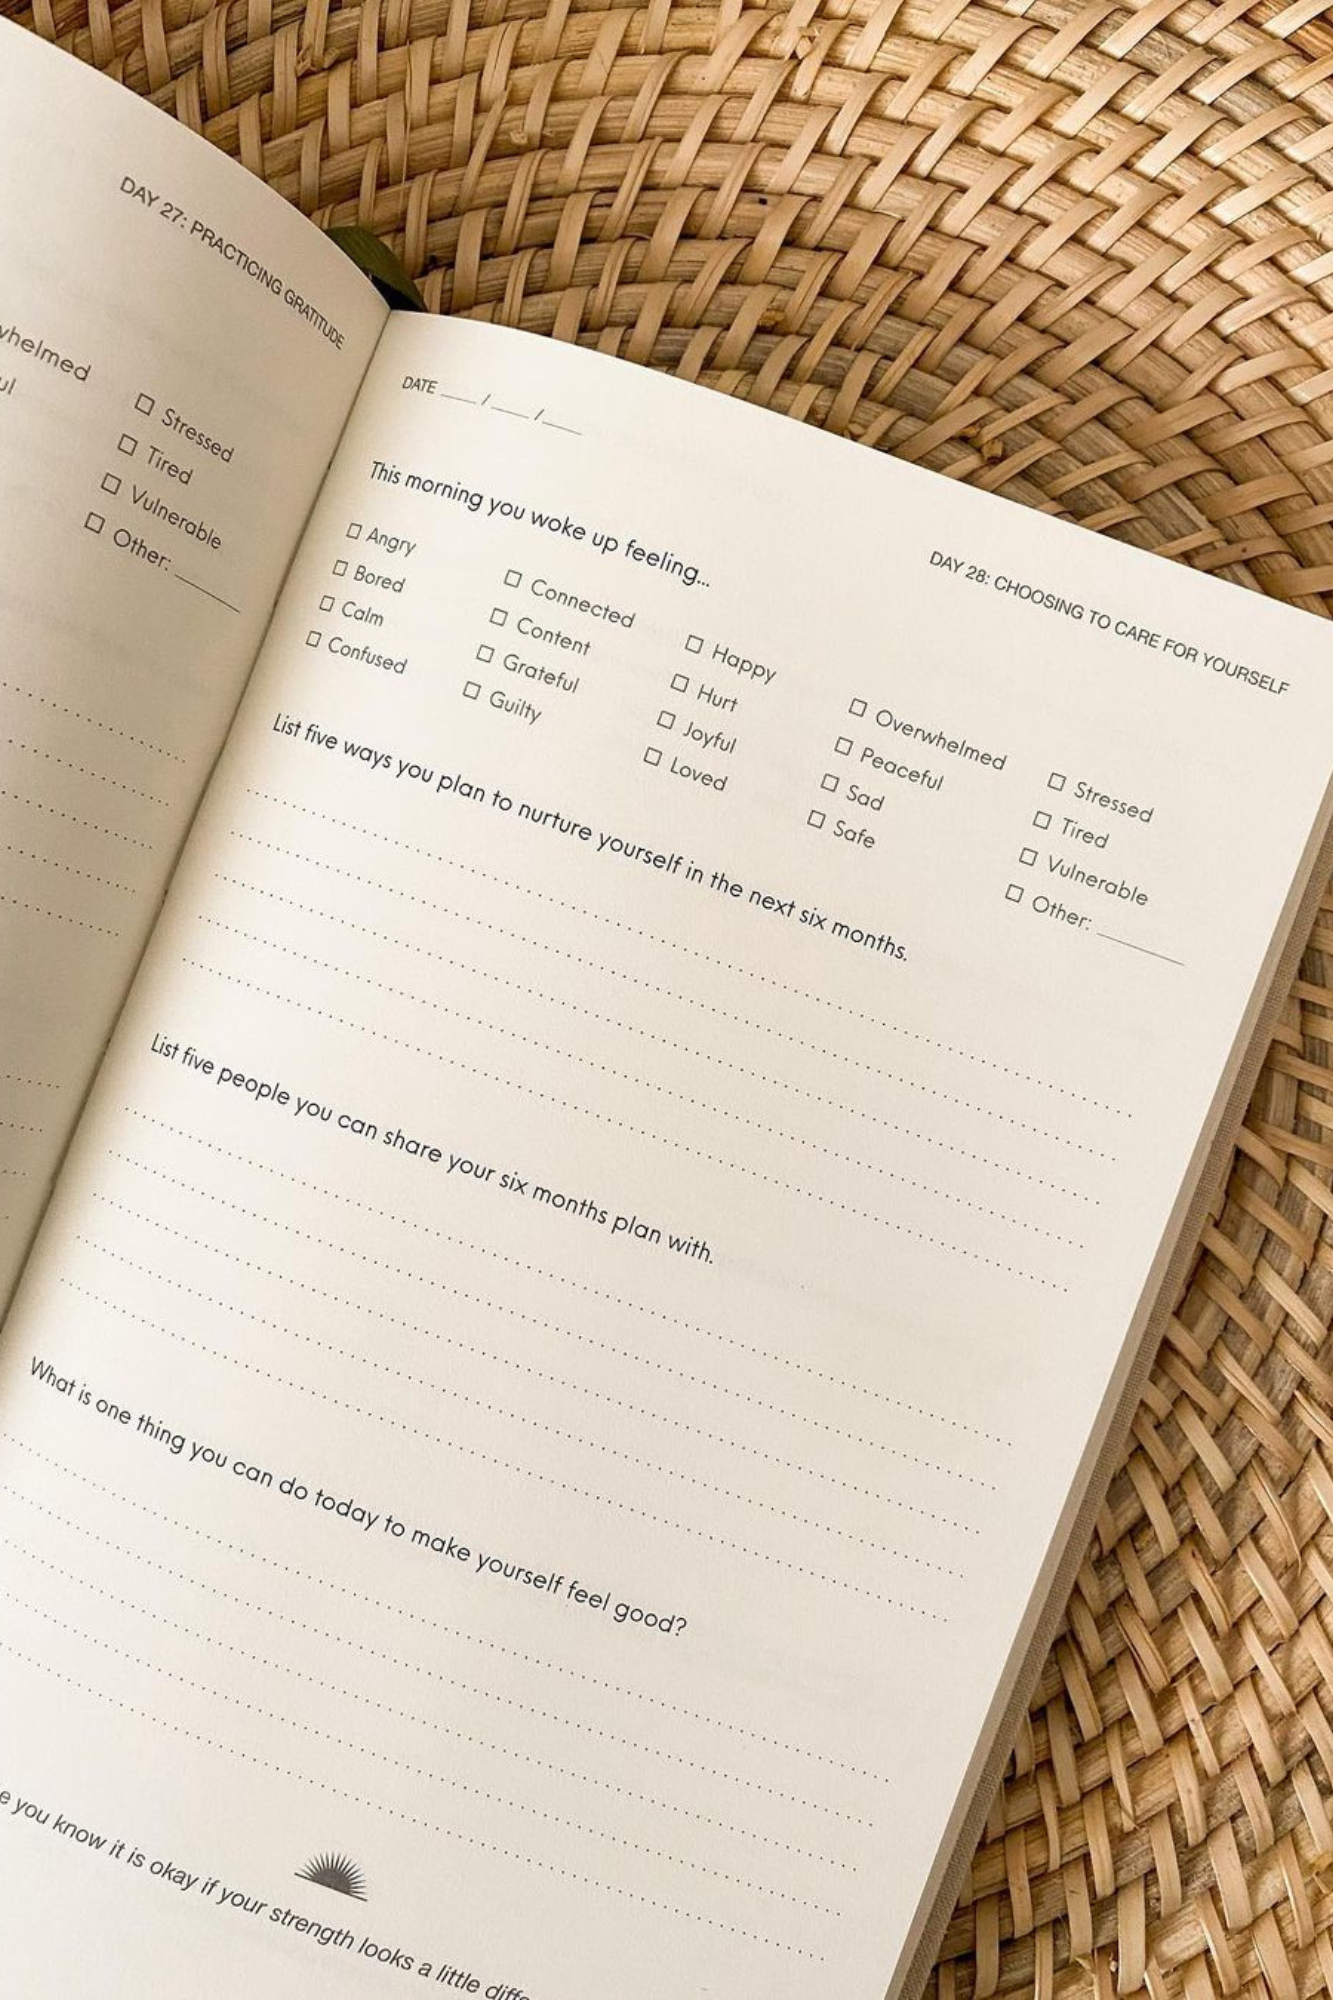 DAY 27: PRACTICING GRATITUDE
☐ Stressed
☐ Tired
☐ Vulnerable
☐ Other: ______
DATE ___ / ___ / ___
DAY 28: CHOOSING TO CARE FOR YOURSELF
This morning you woke up feeling...
☐ Angry
☐ Bored
☐ Calm
☐ Confused
☐ Connected
☐ Content
☐ Grateful
☐ Guilty
☐ Happy
☐ Hurt
☐ Joyful
☐ Loved
☐ Overwhelmed
☐ Peaceful
☐ Sad
☐ Safe
☐ Stressed
☐ Tired
☐ Vulnerable
☐ Other: ______
List five ways you plan to nurture yourself in the next six months.
List five people you can share your six months plan with.
What is one thing you can do today to make yourself feel good?
you know it is okay if your strength looks a little